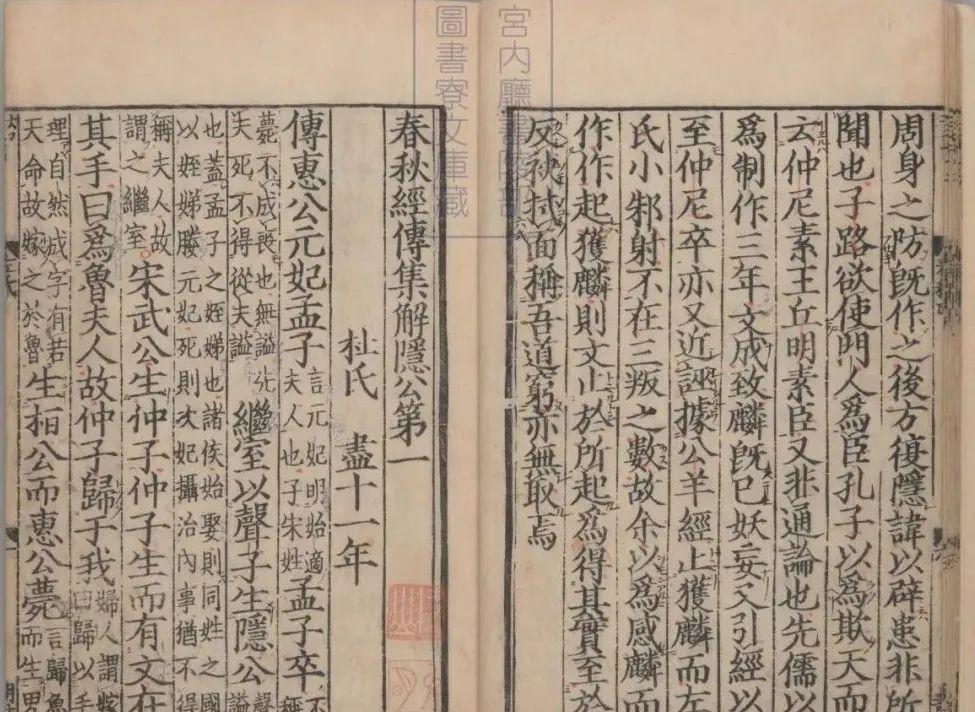 宮内廳書陵部
圖書寮文庫藏
周身之防既作之後方復隱諱以辟患非所
聞也子路欲使門人爲臣孔子以爲欺天而
云仲尼素王丘明素臣又非通論也先儒以
爲制作三年文成致麟既已妖妄又引經以
至仲尼卒亦又近誣據公羊經止獲麟而左
氏小邾射不在三叛之數故余以爲感麟而
作作起獲麟則文止於所起爲得其實至於
反袂拭面稱吾道窮亦無取焉
春秋經傳集解隱公第一
杜氏 盡十一年
傳惠公元妃孟子言元妃明始適夫人也子宋姓孟子卒不稱
薨不成喪也無謚先夫死不得從夫謚繼室以聲子生隱公聲謚
也蓋孟子之姪娣也諸侯始娶則同姓之國以姪娣媵元妃死則次妃攝治內事猶不得
稱夫人故謂之繼室宋武公生仲子仲子生而有文在
其手曰爲魯夫人故仲子歸于我婦人謂嫁曰歸以手
理自然成字有若天命故嫁之於魯生桓公而惠公薨言歸魯而生男